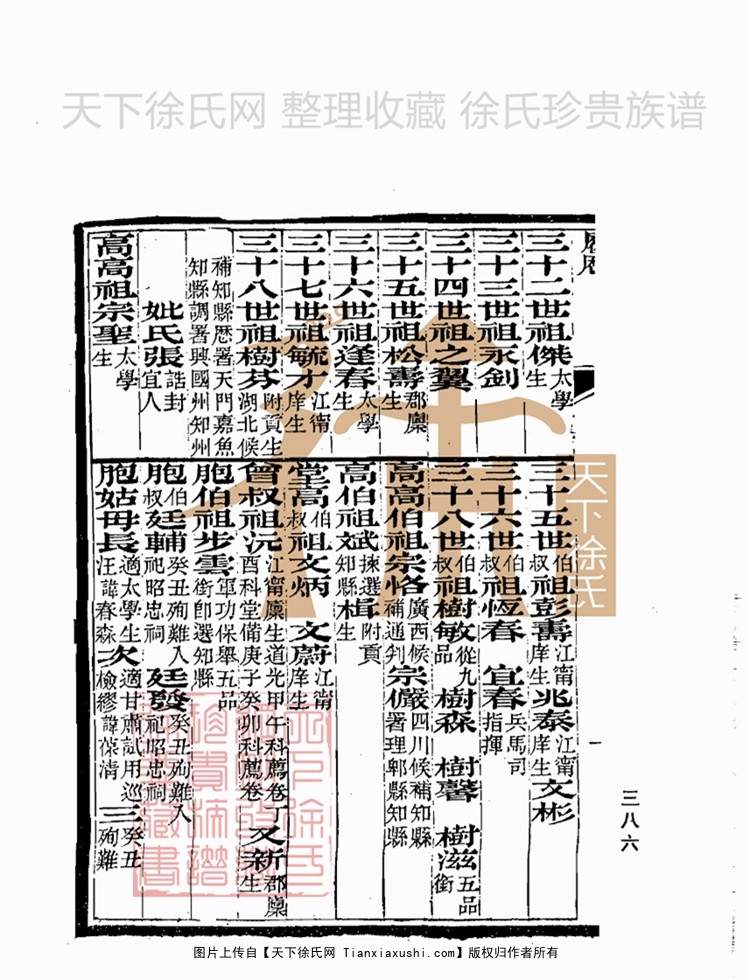 天下徐氏网 整理收藏 徐氏珍贵族谱
三十二世祖傑太學生
三十三世祖永釗
三十四世祖之翼
三十五世祖松壽郡廩生
三十六世祖逢春太學生
三十七世祖毓才江甯庠生
三十八世祖樹芬附貢生湖北候
補知縣歷署天門嘉魚知縣調署興國州知州
妣氏張誥封宜人
高高祖宗聖太學生
三十五世伯叔祖彭壽江甯庠生 兆泰江甯庠生 文彬
三十六世伯叔祖恆春 宜春兵馬司指揮
三十八世伯叔祖樹敏從九品 樹森 樹馨 樹滋五品銜
高高伯祖宗恪廣西候補通判 宗儼四川候補知縣署理郫縣知縣
高伯祖斌揀選知縣 楫附貢生
堂高伯叔祖文炳 文蔚江甯庠生
曾叔祖沅江甯廩生道光甲午科薦卷丁酉科堂備庚子癸卯科薦卷 又新郡廩生
胞伯祖步雲軍功保舉五品銜卽選知縣
胞伯叔廷輔癸丑殉難入祀昭忠祠 廷發癸丑殉難入祀昭忠祠
胞姑母長適太學生汪諱春森 次適甘肅試用巡檢繆諱葆清 三癸丑殉難
三八六
天下徐氏
图片上传自【天下徐氏网 Tianxiaxushi.com】版权归作者所有